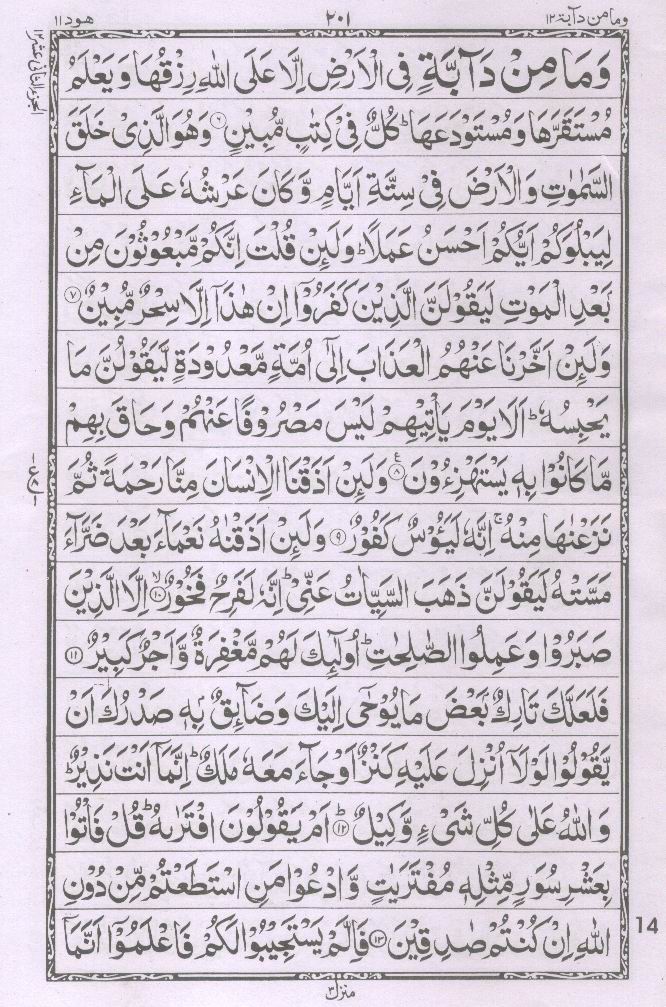 وما من دآبة ١٢ ٢٠١ هود ١١
الجزء الثانی عشر ١٢
وَمَا مِنْ دَآبَّةٍ فِی الْاَرْضِ اِلَّا عَلَی اللّٰهِ رِزْقُهَا وَیَعْلَمُ
مُسْتَقَرَّهَا وَمُسْتَوْدَعَهَا ؕ كُلٌّ فِیْ كِتٰبٍ مُّبِیْنٍ ۶ وَهُوَ الَّذِیْ خَلَقَ
السَّمٰوٰتِ وَالْاَرْضَ فِیْ سِتَّةِ اَیَّامٍ وَّكَانَ عَرْشُهٗ عَلَی الْمَآءِ
لِیَبْلُوَكُمْ اَیُّكُمْ اَحْسَنُ عَمَلًا ؕ وَلَىِٕنْ قُلْتَ اِنَّكُمْ مَّبْعُوْثُوْنَ مِنْ
بَعْدِ الْمَوْتِ لَیَقُوْلَنَّ الَّذِیْنَ كَفَرُوْۤا اِنْ هٰذَاۤ اِلَّا سِحْرٌ مُّبِیْنٌ ۷
وَلَىِٕنْ اَخَّرْنَا عَنْهُمُ الْعَذَابَ اِلٰۤی اُمَّةٍ مَّعْدُوْدَةٍ لَّیَقُوْلُنَّ مَا
یَحْبِسُهٗ ؕ اَلَا یَوْمَ یَاْتِیْهِمْ لَیْسَ مَصْرُوْفًا عَنْهُمْ وَحَاقَ بِهِمْ
مَّا كَانُوْا بِهٖ یَسْتَهْزِءُوْنَ ۸ ع وَلَىِٕنْ اَذَقْنَا الْاِنْسَانَ مِنَّا رَحْمَةً ثُمَّ
نَزَعْنٰهَا مِنْهُ ۚ اِنَّهٗ لَیَـُٔوْسٌ كَفُوْرٌ ۹ وَلَىِٕنْ اَذَقْنٰهُ نَعْمَآءَ بَعْدَ ضَرَّآءَ
مَسَّتْهُ لَیَقُوْلَنَّ ذَهَبَ السَّیِّاٰتُ عَنِّیْ ؕ اِنَّهٗ لَفَرِحٌ فَخُوْرٌ ۙ۱۰ اِلَّا الَّذِیْنَ
صَبَرُوْا وَعَمِلُوا الصّٰلِحٰتِ ؕ اُولٰٓىِٕكَ لَهُمْ مَّغْفِرَةٌ وَّاَجْرٌ كَبِیْرٌ ۱۱
فَلَعَلَّكَ تَارِكٌۢ بَعْضَ مَا یُوْحٰۤی اِلَیْكَ وَضَآىِٕقٌۢ بِهٖ صَدْرُكَ اَنْ
یَّقُوْلُوْا لَوْلَاۤ اُنْزِلَ عَلَیْهِ كَنْزٌ اَوْ جَآءَ مَعَهٗ مَلَكٌ ؕ اِنَّمَاۤ اَنْتَ نَذِیْرٌ ؕ
وَاللّٰهُ عَلٰی كُلِّ شَیْءٍ وَّكِیْلٌ ؕ۱۲ اَمْ یَقُوْلُوْنَ افْتَرٰىهُ ؕ قُلْ فَاْتُوْا
بِعَشْرِ سُوَرٍ مِّثْلِهٖ مُفْتَرَیٰتٍ وَّادْعُوْا مَنِ اسْتَطَعْتُمْ مِّنْ دُوْنِ
اللّٰهِ اِنْ كُنْتُمْ صٰدِقِیْنَ ۱۳ فَاِلَّمْ یَسْتَجِیْبُوْا لَكُمْ فَاعْلَمُوْۤا اَنَّمَاۤ
14
منزل ٣